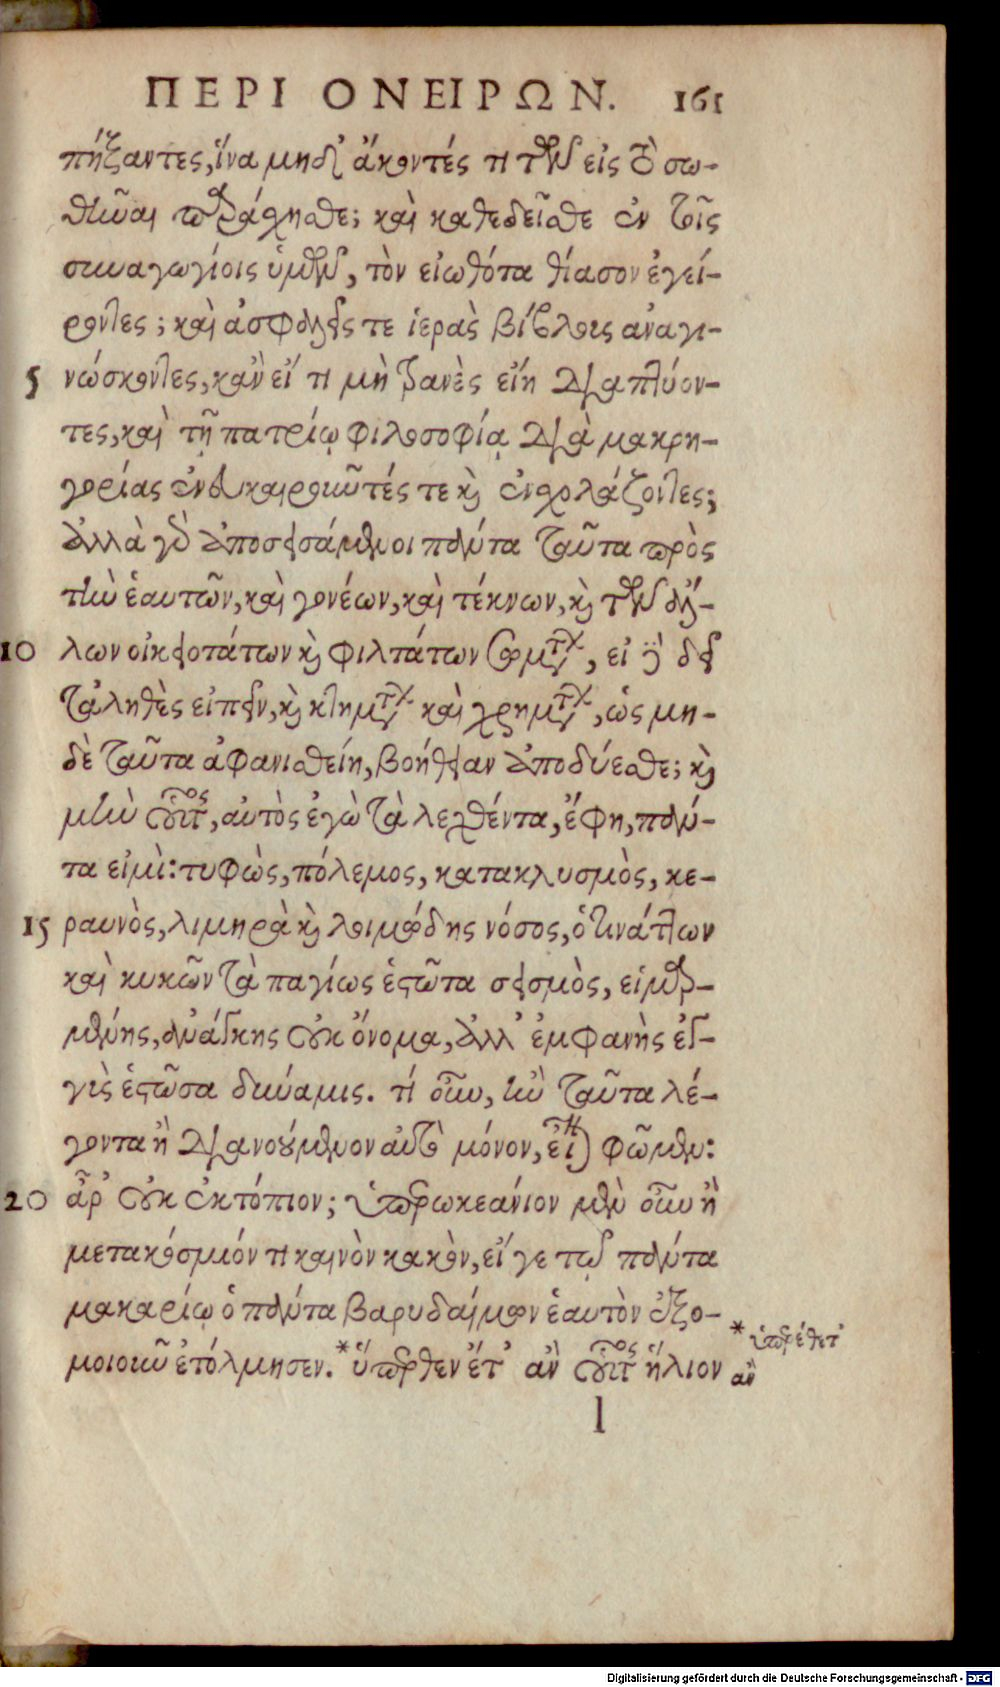 ΠΕΡΙ ΟΝΕΙΡΩΝ. 161
πήξαντες, ἵνα μηδ' ἄκοντές τι τῶν εἰς τὸ σω-
θῆναι παράσχησθε; καὶ καθεδεῖσθε ἐν τοῖς
συναγωγίοις ὑμῶν, τὸν εἰωθότα θίασον ἐγεί-
ροντες; καὶ ἀσφαλῶς τε ἱερὰς βίβλους αναγι-
5 νώσκοντες, κἂν εἴ τι μὴ τρανὲς εἴη διαπτύον-
τες, καὶ τῇ πατρίῳ φιλοσοφίᾳ διὰ μακρη-
γορίας ἐνευκαιροῦντές τε καὶ ἐνσχολάζοντες;
ἀλλὰ γὸ ἀποσεισάμενοι πάντα ταῦτα πρὸς
τὴν ἑαυτῶν, καὶ γονέων, καὶ τέκνων, καὶ τῶν ἄλ-
10 λων οἰκειοτάτων καὶ φιλτάτων σωμάτων, εἰ δὲ δεῖ
τἀληθὲς εἰπεῖν, καὶ κτημάτων καὶ χρημάτων, ὡς μη-
δὲ ταῦτα ἀφανισθείη, βοήθειαν ἀποδύεσθε; καὶ
μὴν οὗτος, αὐτὸς ἐγὼ τὰ λεχθέντα, ἔφη, πάν-
τα εἰμὶ: τυφὼς, πόλεμος, κατακλυσμὸς, κε-
15 ραυνὸς, λιμηρὰ καὶ λοιμώδης νόσος, ὁ τινάττων
καὶ κυκῶν τὰ παγίως ἑστῶτα σεισμὸς, εἱμαρ-
μένης, ἀνάγκης οὐκ ὄνομα, ἀλλ' ἐμφανὴς ἐγ-
γὺς ἑστῶσα δύναμις. τί οὖν, τὸν ταῦτα λέ-
γοντα ἢ διανούμενον αὐτὸ μόνον, εἶναι φῶμεν:
20 ἆρ' οὐκ ἐκτόπιον; ὑπερωκεάνιον μὲν οὖν ἢ
μετακόσμιόν τι καινὸν κακὸν, εἴ γε τῷ πάντα
μακαρίῳ ὁ πάντα βαρυδαίμων ἑαυτὸν ἐξο-
μοιοῦν ἐτόλμησεν. * ὕπερθεν ἔτ' ἂν οὗτος ἥλιον
* ὑπερέθετ'
ἂν
l
Digitalisierung gefördert durch die Deutsche Forschungsgemeinschaft - DFG